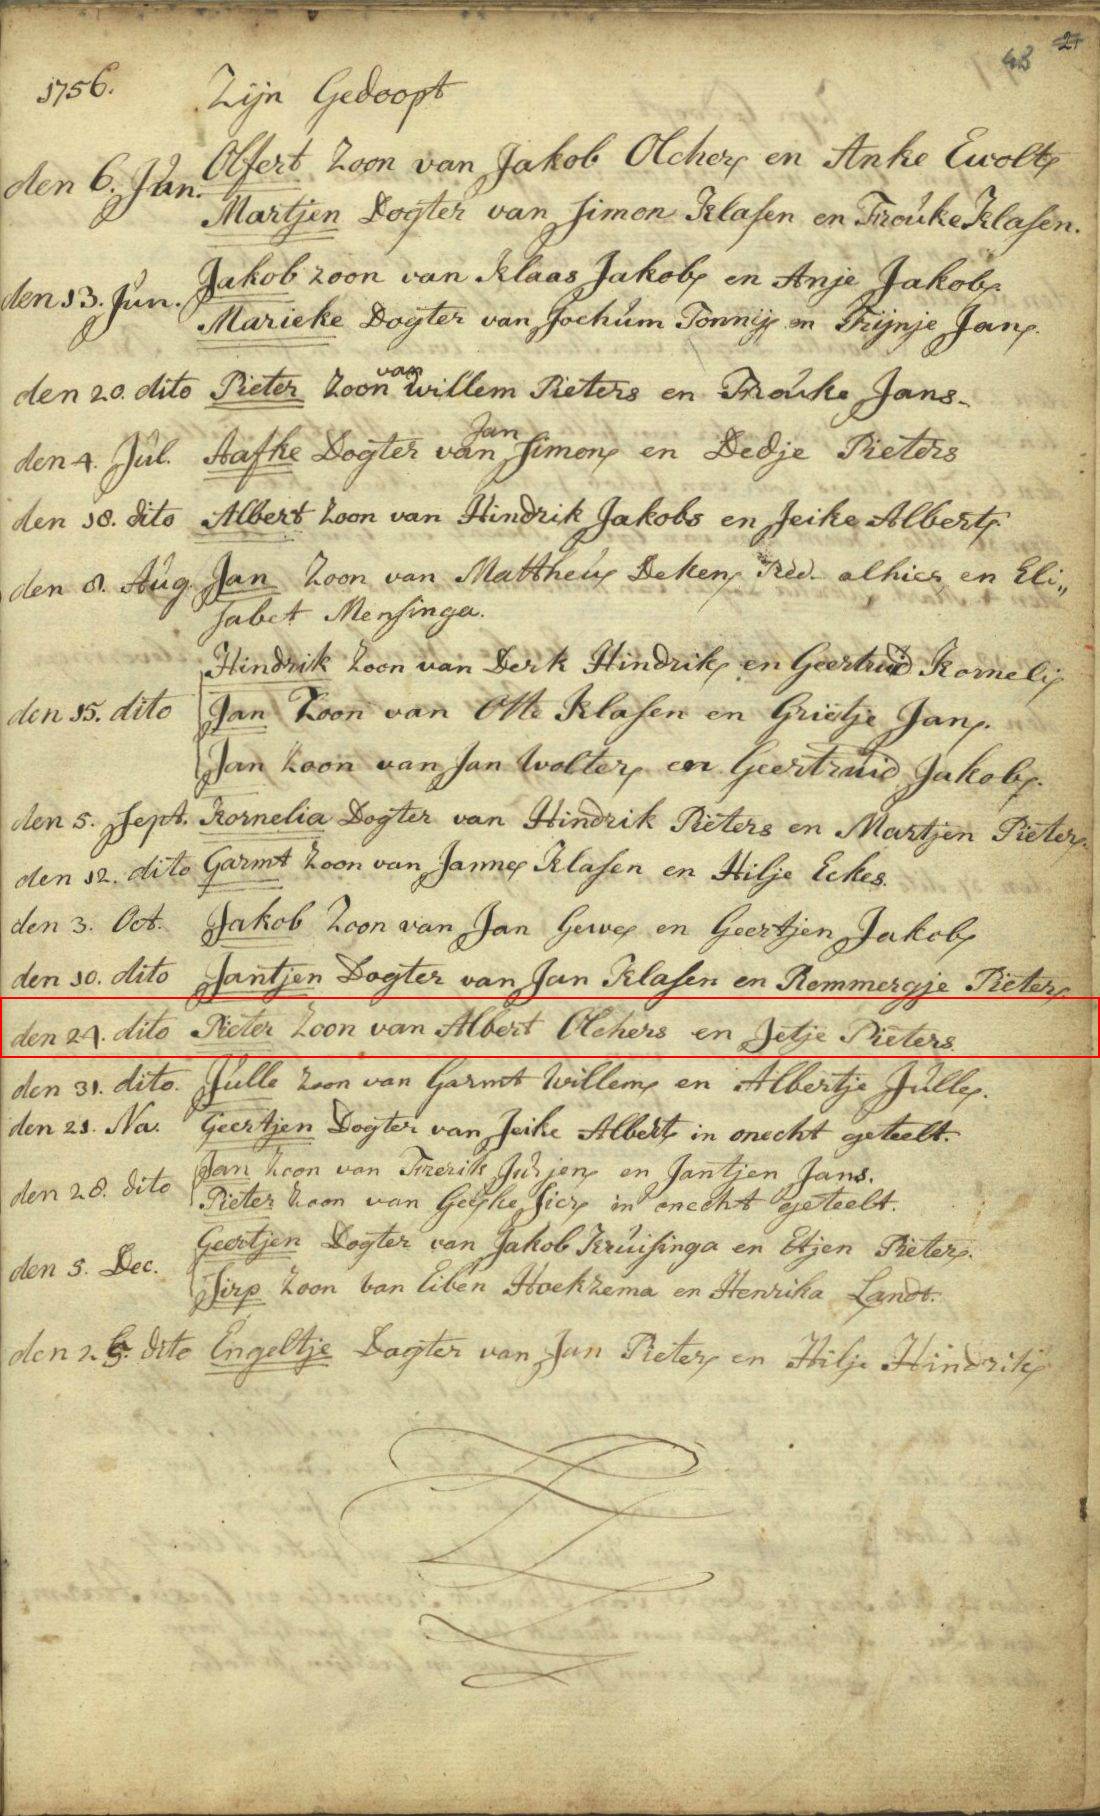 48 21
1756. Zijn Gedoopt
den 6. Jun. Olfert Zoon van Jakob Olchers en Anke Ewolts
Martjen Dogter van Simon Klasen en Frouke Klasen.
den 13. Jun. Jakob zoon van Klaas Jakobs en Anje Jakobs
Marieke Dogter van Jochum Tonnijs en Trijnje Jans.
van
den 20. dito Pieter Zoon willem Pieters en Frouke Jans.
Jan
den 4. Jul. Aafke Dogter van Simons en Dedje Pieters
den 18. dito Albert Zoon van Hindrik Jakobs en Jeike Alberts.
den 8. Aug. Jan Zoon van Mattheus Dekens Pred. alhier en Eli„
sabet Mensinga.
Hindrik Zoon van Derk Hindriks en Geertruid Kornelis
den 15. dito Jan Zoon van Otte Klasen en Grietje Jans.
Jan Zoon van Jan Wolters en Geertruid Jakobs.
den 5. Sept. Kornelia Dogter van Hindrik Pieters en Martjen Pieters.
den 12. dito Garmt Zoon van Jannes Klasen en Hilje Eckes.
den 3. Oct. Jakob Zoon van Jan Gewes en Geertjen Jakobs
den 10. dito Jantjen Dogter van Jan Klasen en Remmergje Pieters
den 24. dito Pieter Zoon van Albert Olchers en Jetje Pieters
den 31. dito. Julle Zoon van Garmt Willems en Albertje Julles.
den 21. No. Geertjen Dogter van Jeike Alberts in onecht geteelt.
Jan Zoon van Frerik Jurjens en Jantjen Jans.
den 28. dito Pieter Zoon van Geeske Siers in onecht geteelt.
Geertjen Dogter van Jakob Kruisinga en Etjen Pieters.
den 5. Dec. Sirp Zoon van Eiben Hoekzema en Henrika Landt.
den 26. dito Engeltje Dogter van Jan Pieters en Hilje Hindriks